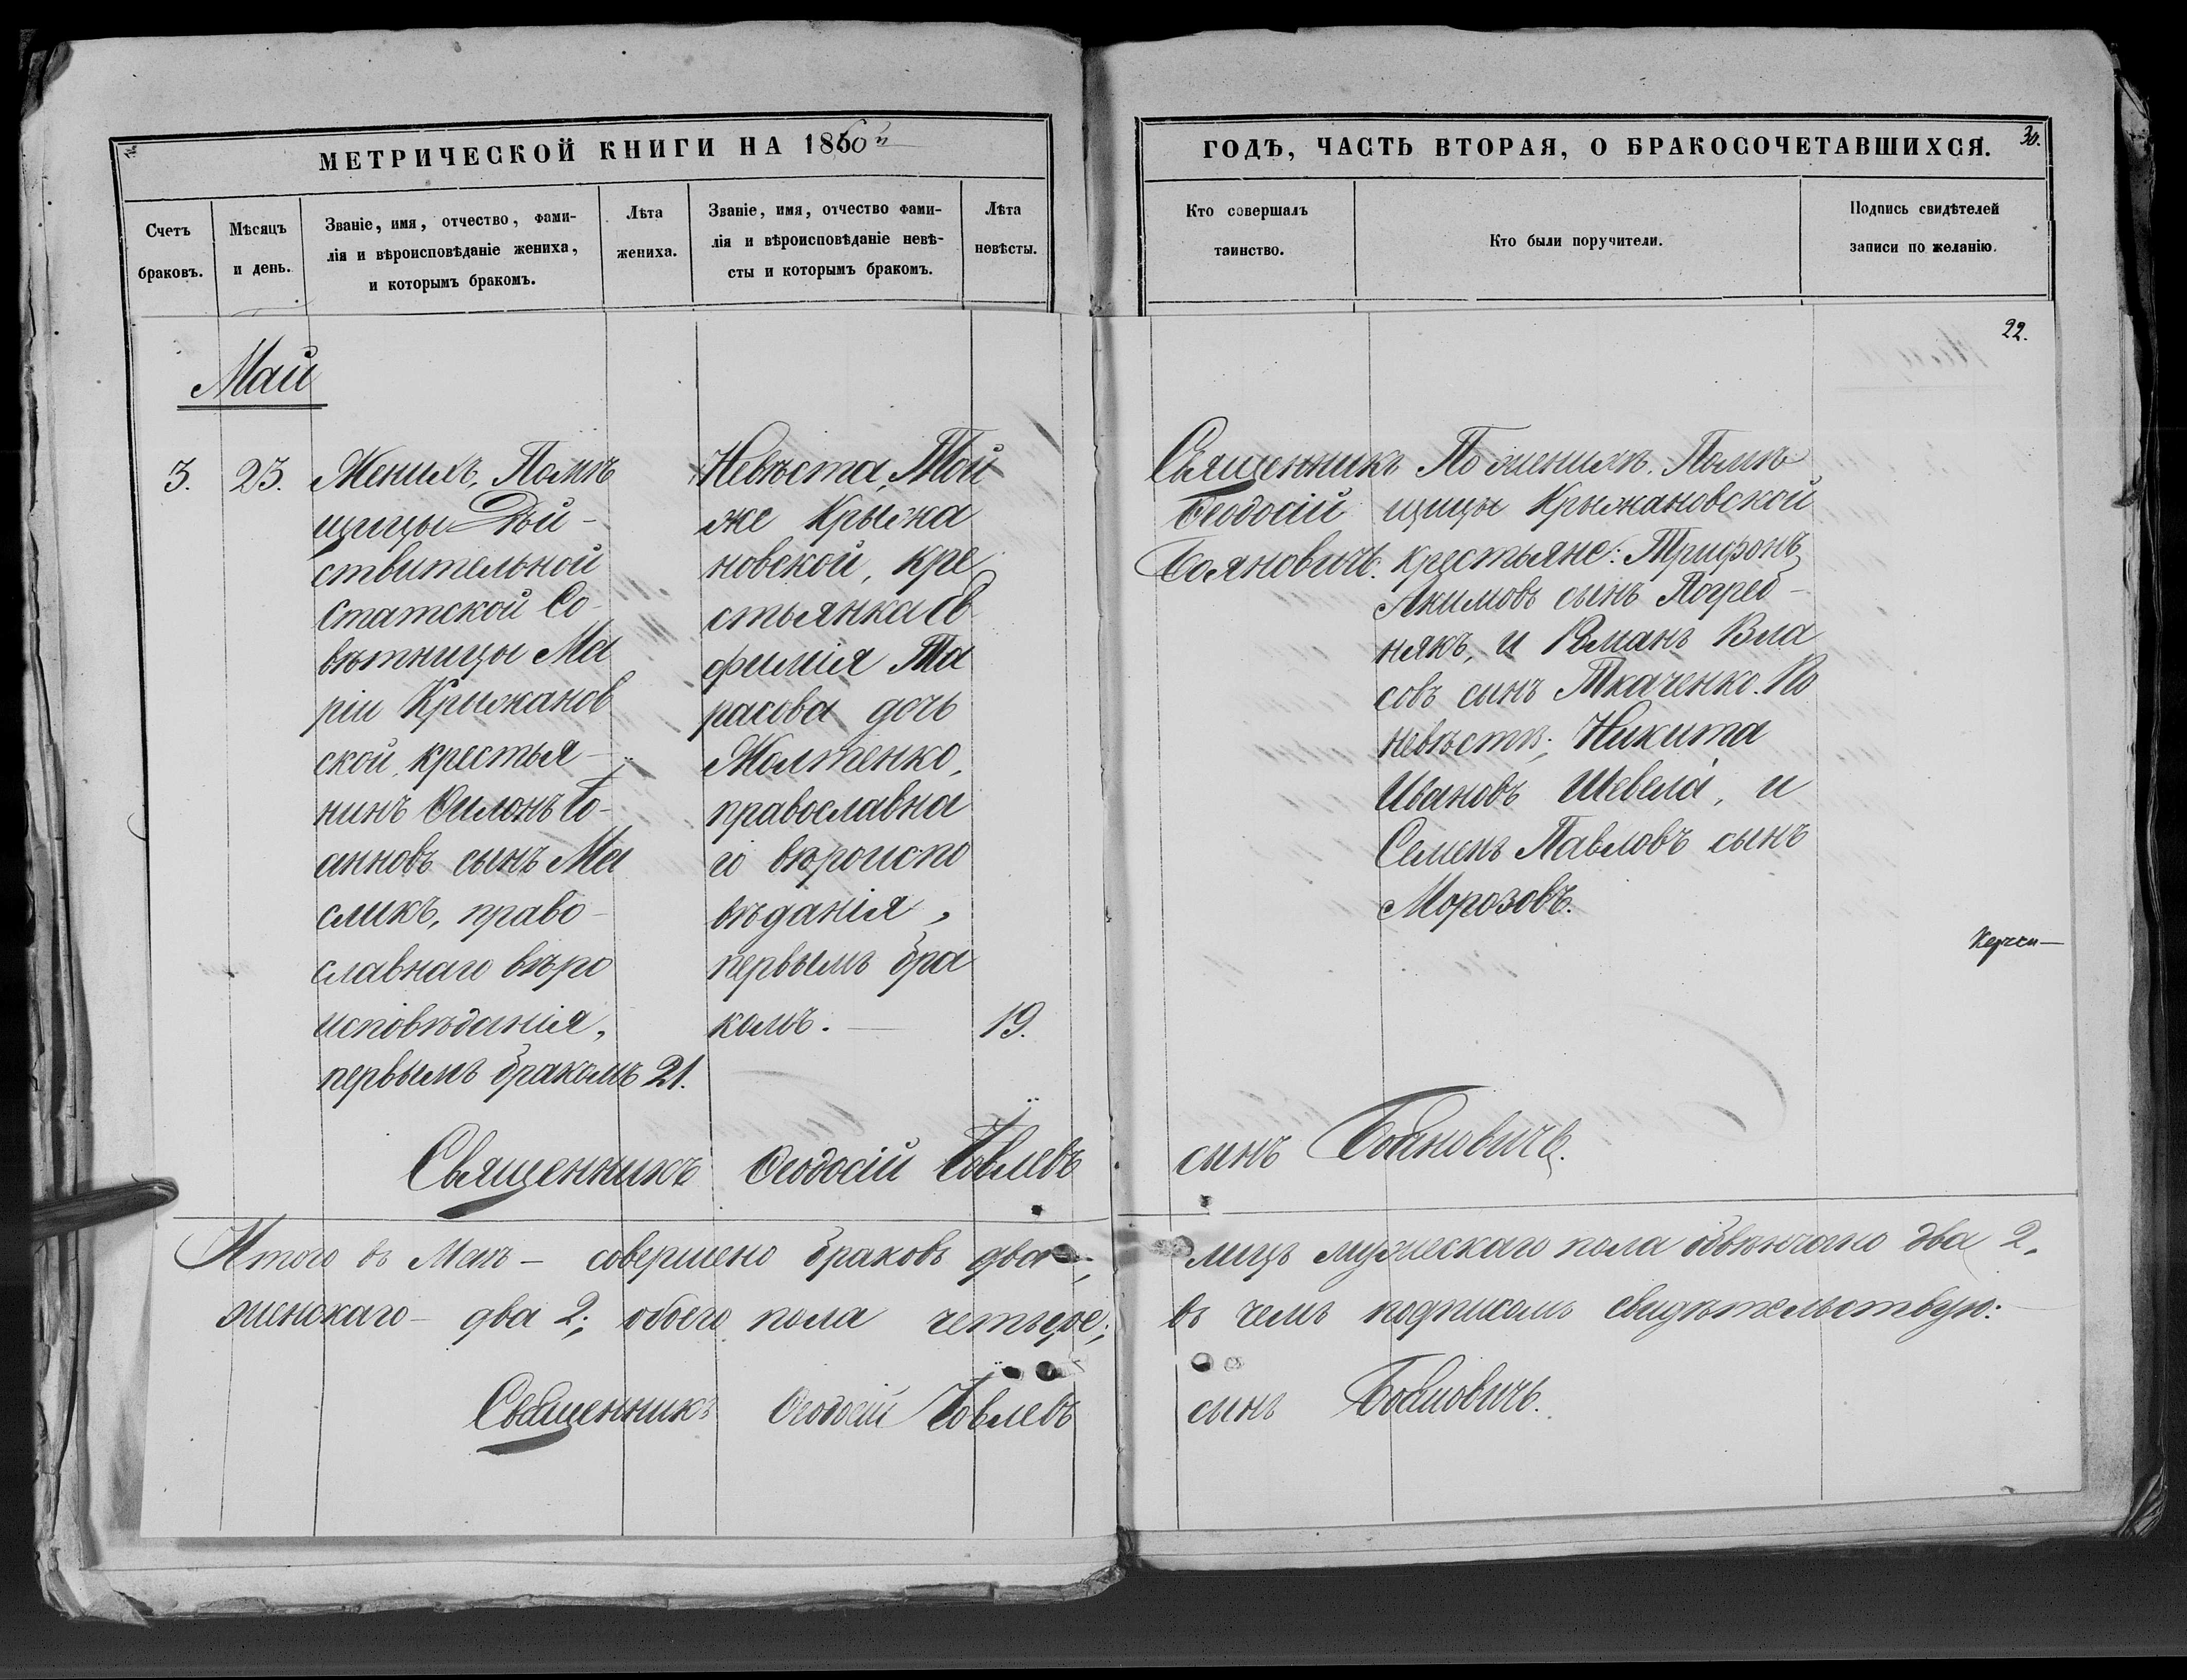 МЕТРИЧЕСКОЙ КНИГИ НА 1860й
ГОДЪ, ЧАСТЬ ВТОРАЯ, О БРАКОСОЧЕТАВШИХСЯ.
30.
Счетъ
браковъ.
Мѣсяцъ
и день.
Званіе, имя, отчество, фами-
лія и вѣроисповѣданіе жениха,
и которымъ бракомъ.
Лѣта
жениха.
Званіе, имя, отчество фами-
лія и вѣроисповѣданіе невѣ-
сты и которымъ бракомъ.
Лѣта
невѣсты.
Кто совершалъ
таинство.
Кто были поручители.
Подпись свидѣтелей
записи по желанію.
22.
Май
3.
23.
Женихъ, Помѣ
щицы Дѣй-
ствительной
Статской Со-
вѣтницы Ма
ріи Крыжанов
ской, крестья-
нинъ Филонъ Іо-
анновъ сынъ Ма
сликъ, право-
славнаго вѣро
исповѣданія,
первымъ бракомъ 21.
Невѣста, Той
же Крыжа
новской, кре
стьянка Ев
фимія Та
расова дочь
Жолтенко,
православна
го вѣроиспо
вѣданія,
первымъ бра
комъ.
19.
Священникъ
Ѳеодосій
Бояновичъ.
По женихѣ. Помѣ
щицы Крыжановской
крестьяне: Трифонъ
Якимовъ сынъ Погреб-
някъ, и Романъ Вла
совъ сынъ Ткаченко. По
невѣстѣ; Никита
Ивановъ Шевела, и
Семенъ Павловъ сынъ
Морозовъ.
Священникъ Ѳеодосій Іовлевъ сынъ Бояновичъ.
Итого въ Маѣ - совершено браковъ два; лицъ мужескаго пола обвѣнчано два 2,
женскаго - два 2; обоего пола четыре; въ чемъ подписомъ свидѣтельствую:
Священникъ Ѳеодосій Іовлевъ сынъ Бояновичъ.